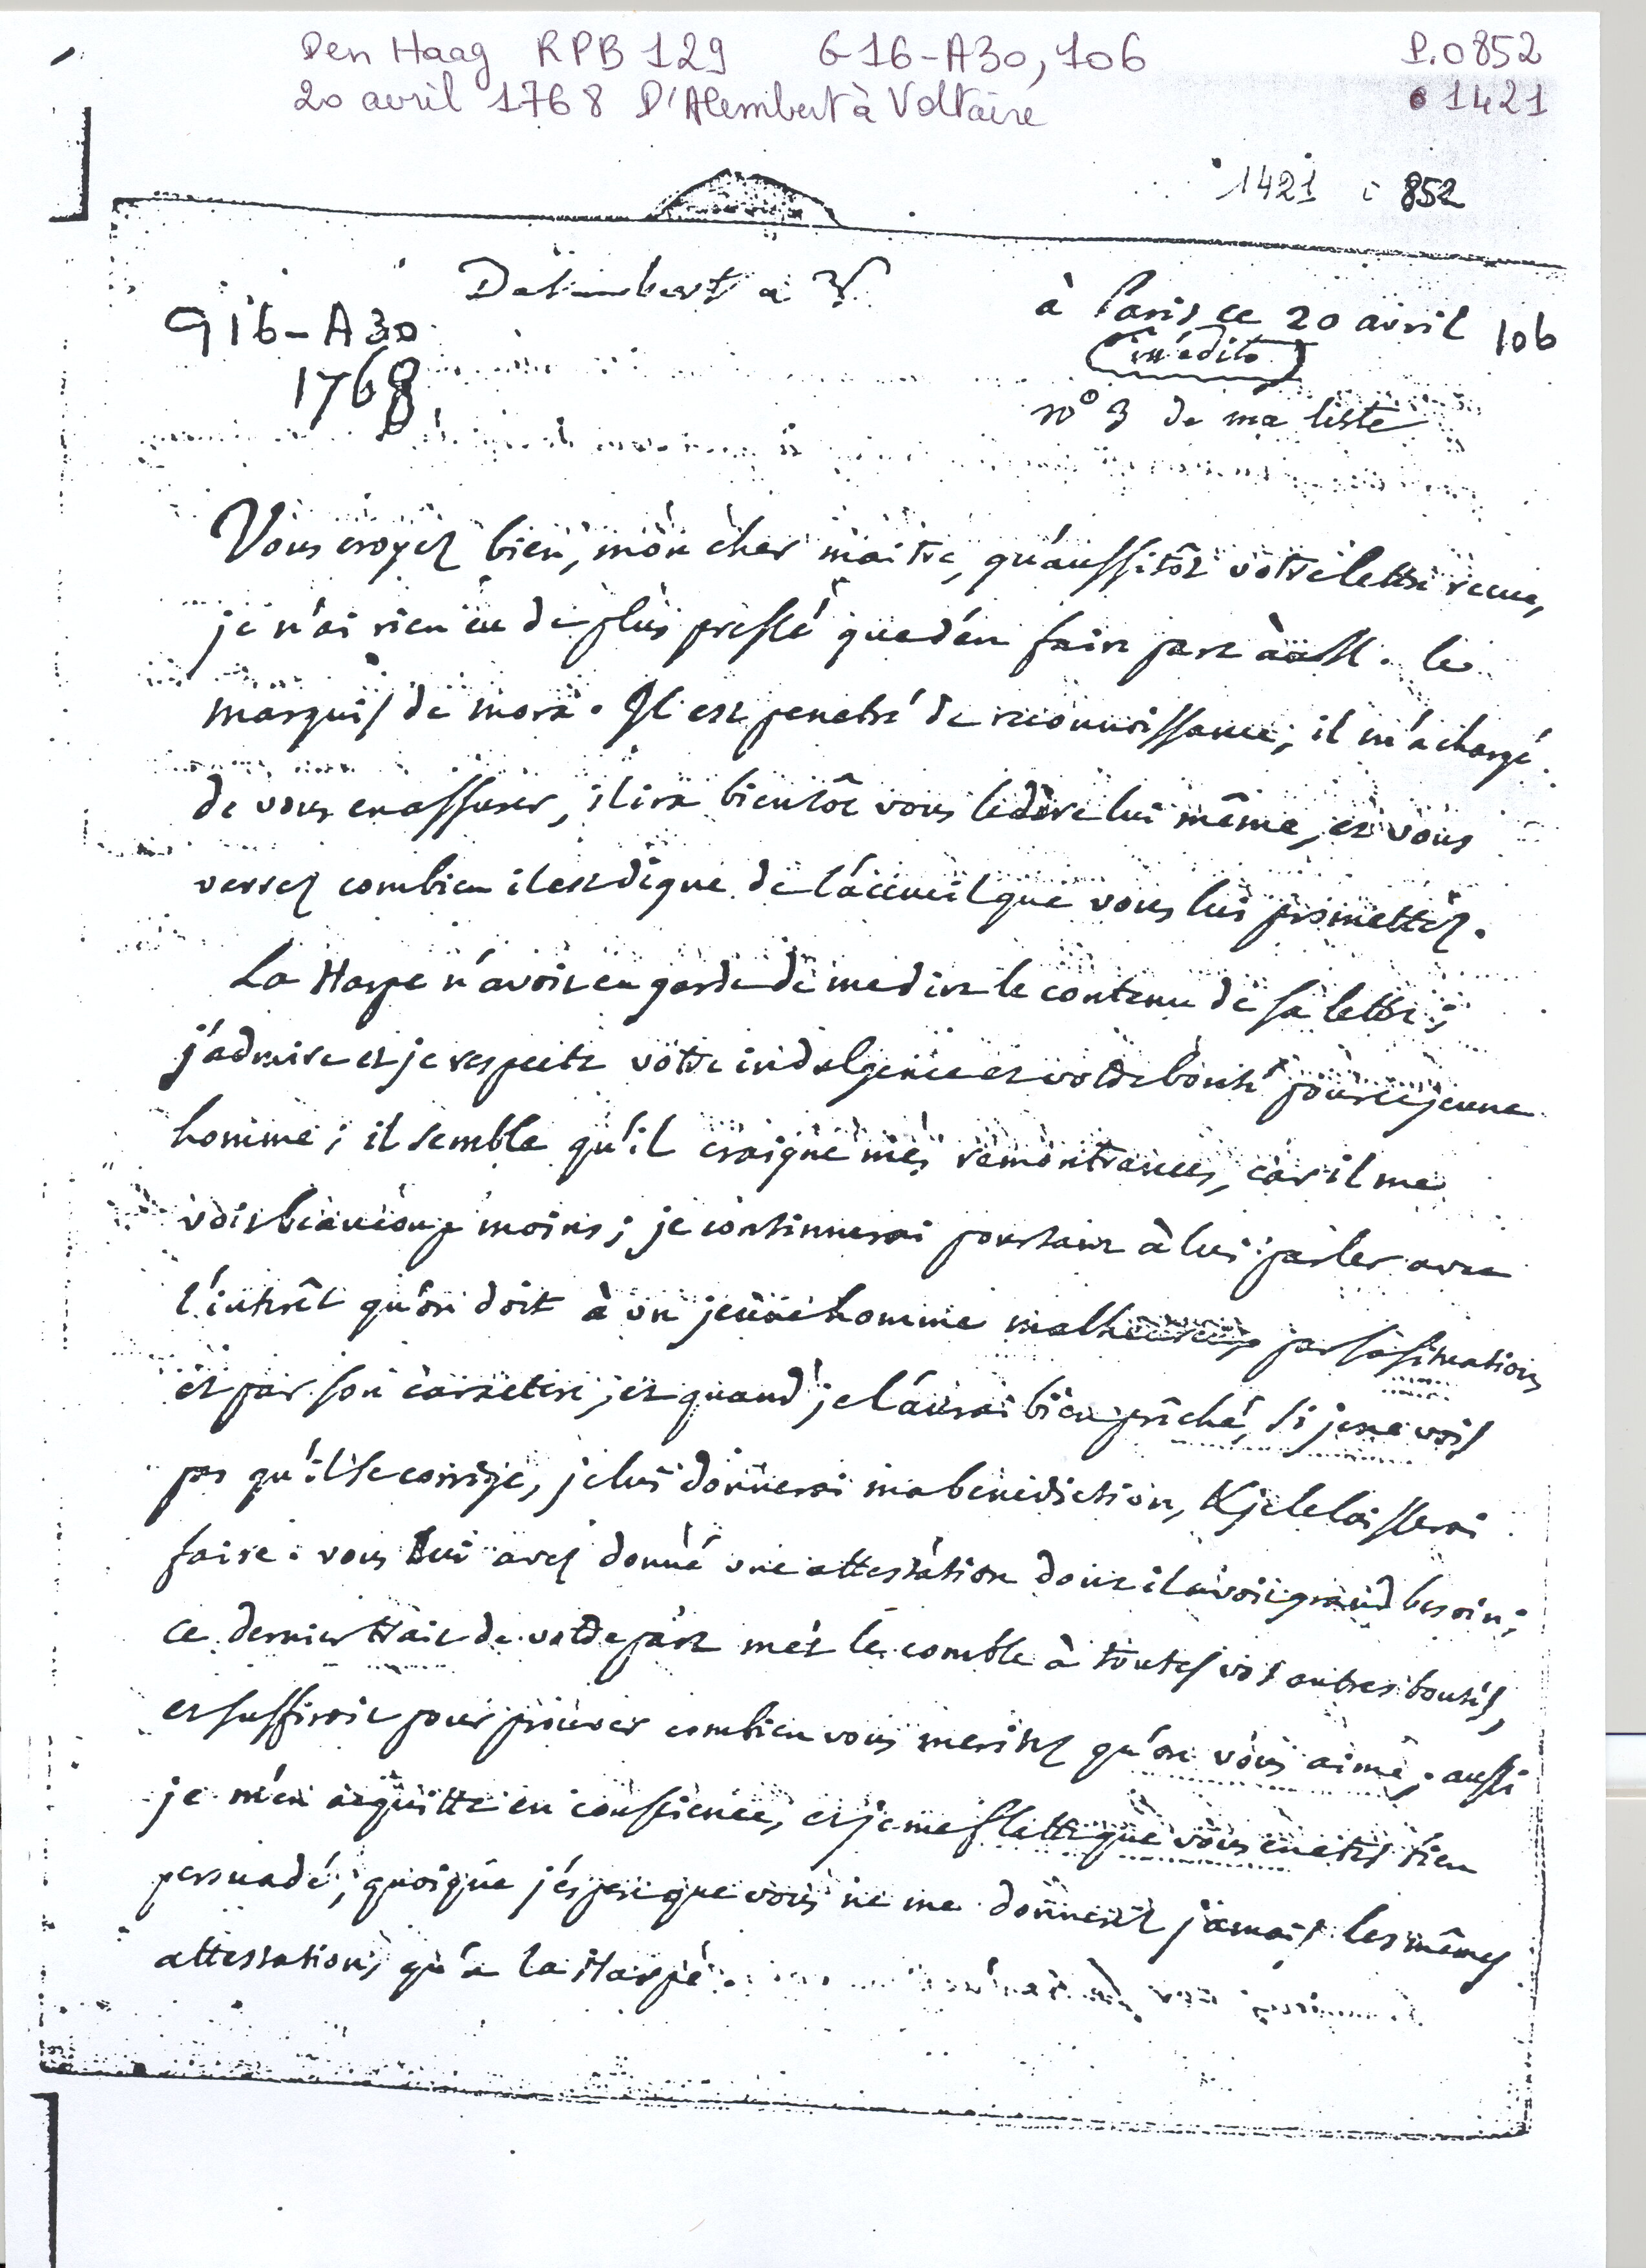 Den Haag RPB 129 G16-A30, 106 P.0852
20 avril 1768 D'Alembert à Voltaire 1421
1421 852
Dalembert a V.
à Paris ce 20 avril 106
G16-A30
inédite
1768
n° 3 de ma liste
Vous croyez bien, mon cher maitre, qu'aussitôt votre lettre recue,
je n'ai rien eu de plus pressé que d'en faire part à M. le
marquis de mora. Il est penetré de reconnoissance; il m'a chargé
de vous en assurer, il ira bientôt vous le dire lui même, et vous
verrez combien il est digne de l'accueil que vous lui promettez.
La Harpe n'avoit eu garde de me dire le contenu de sa lettre;
j'admire et je respecte votre indulgence et votre bonté pour ce jeune
homme; il semble qu'il craigne mes remontrances, car il me
voit beaucoup moins; je continuerai pourtant à lui parler avec
l'intérêt qu'on doit à un jeune homme malheureux par sa situation
et par son caractere; et quand je l'aurai bien prêché, si je ne vois
pas qu'il se corrige, je lui donnerai ma benediction, & je le laisserai
faire. vous lui avez donné une attestation dont il avoit grand besoin;
ce dernier trait de votre part met le comble à toutes vos autres bontés,
et suffiroit pour prouver combien vous meritez qu'on vous aime; aussi
je m'en acquitte en conscience, et je me flatte que vous en etes bien
persuadé; quoique j'espere que vous ne me donnerez jamais les mêmes
attestations qu'a la Harpe.